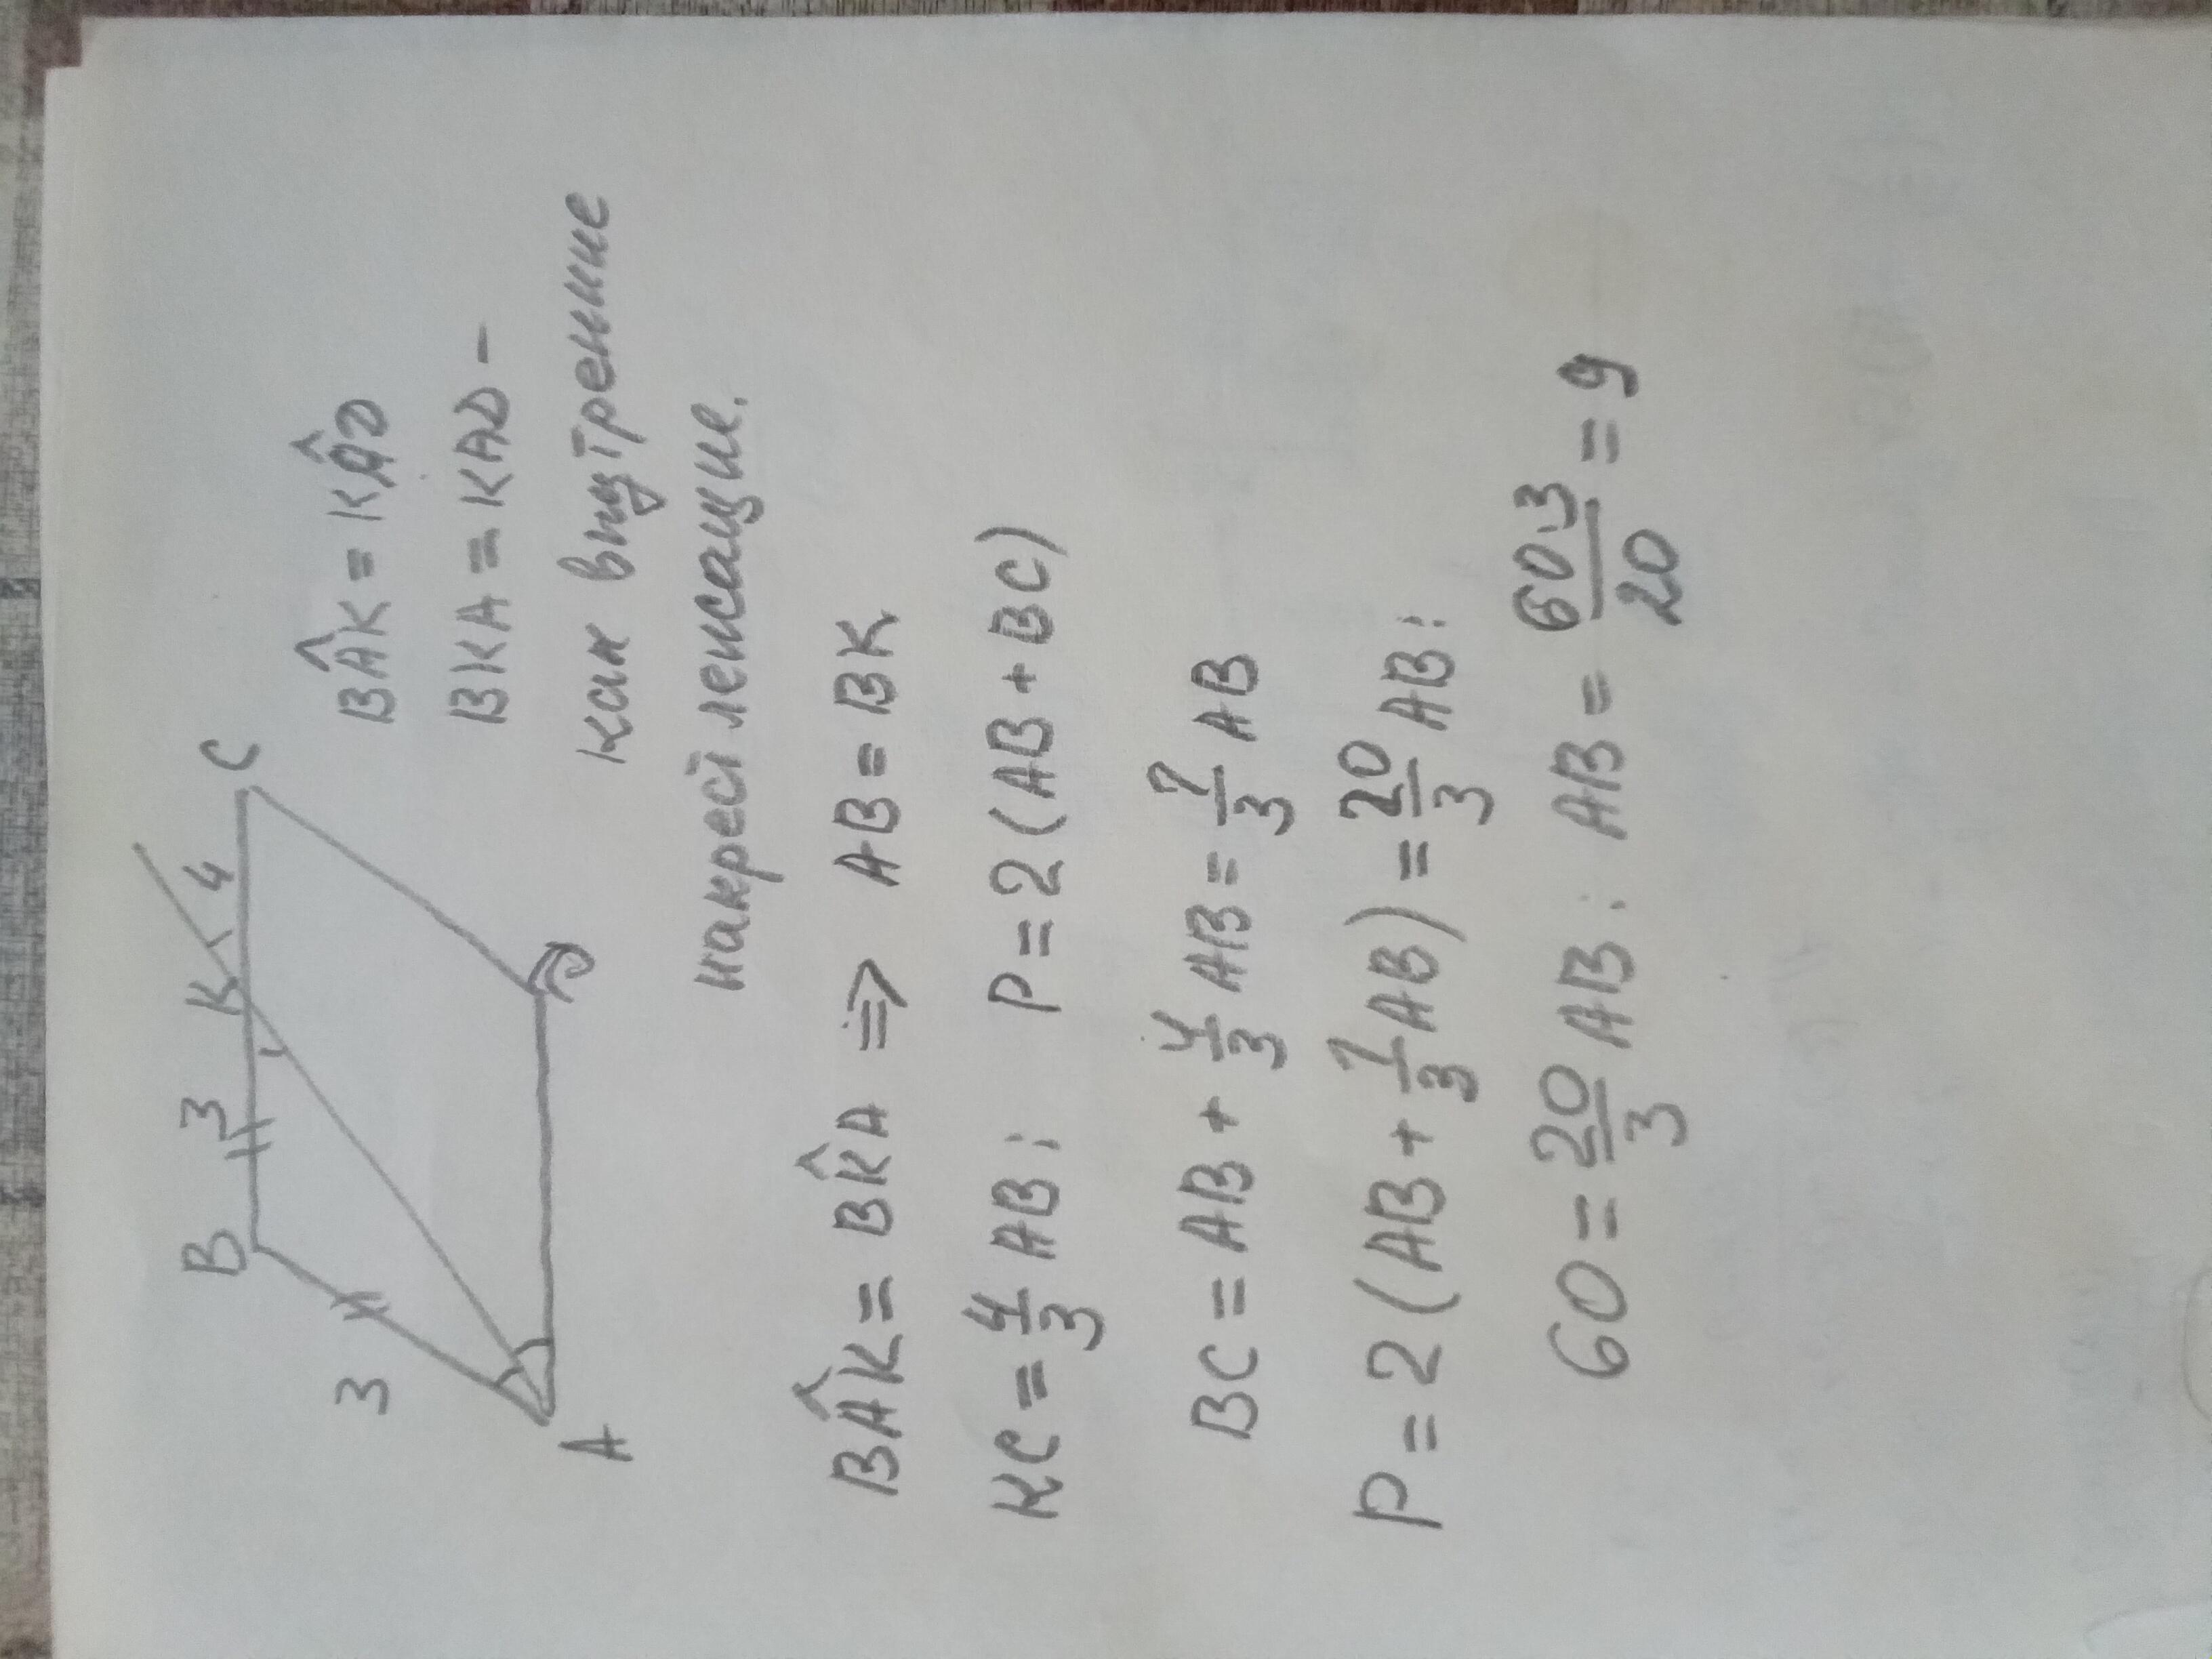 B K C
3 4
3
A D
BÂK = KÂD
BKA = KAD -
как внутренние
накрест лежащие.
BÂK = BK̂A ⇒ AB = BK
KC = 4/3 AB; P = 2(AB + BC)
BC = AB + 4/3 AB = 7/3 AB
P = 2(AB + 7/3 AB) = 20/3 AB;
60 = 20/3 AB; AB = 60·3/20 = 9